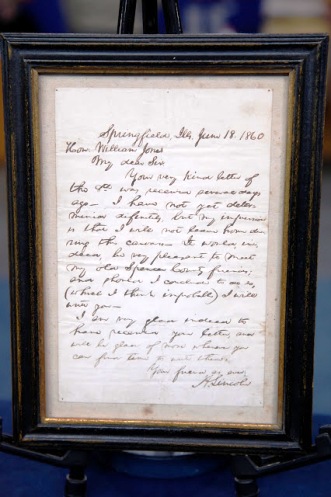 Springfield, Ills. June 18. 1860
Hon. William Jones
My dear Sir
Your very kind letter of
the was received some days
ago— I have not yet deter-
mined definitely, but my impression
is that I will not leave home du-
ring the canvass. It would in-
deed, be very pleasant to meet
my old Spencer County friends;
and should I conclude to do so,
(which I think improbable) I will
write you—
I am very glad indeed to
have received your letter, and
will be glad of more whenever you
can find time to write them.
Your friend as ever
A. Lincoln